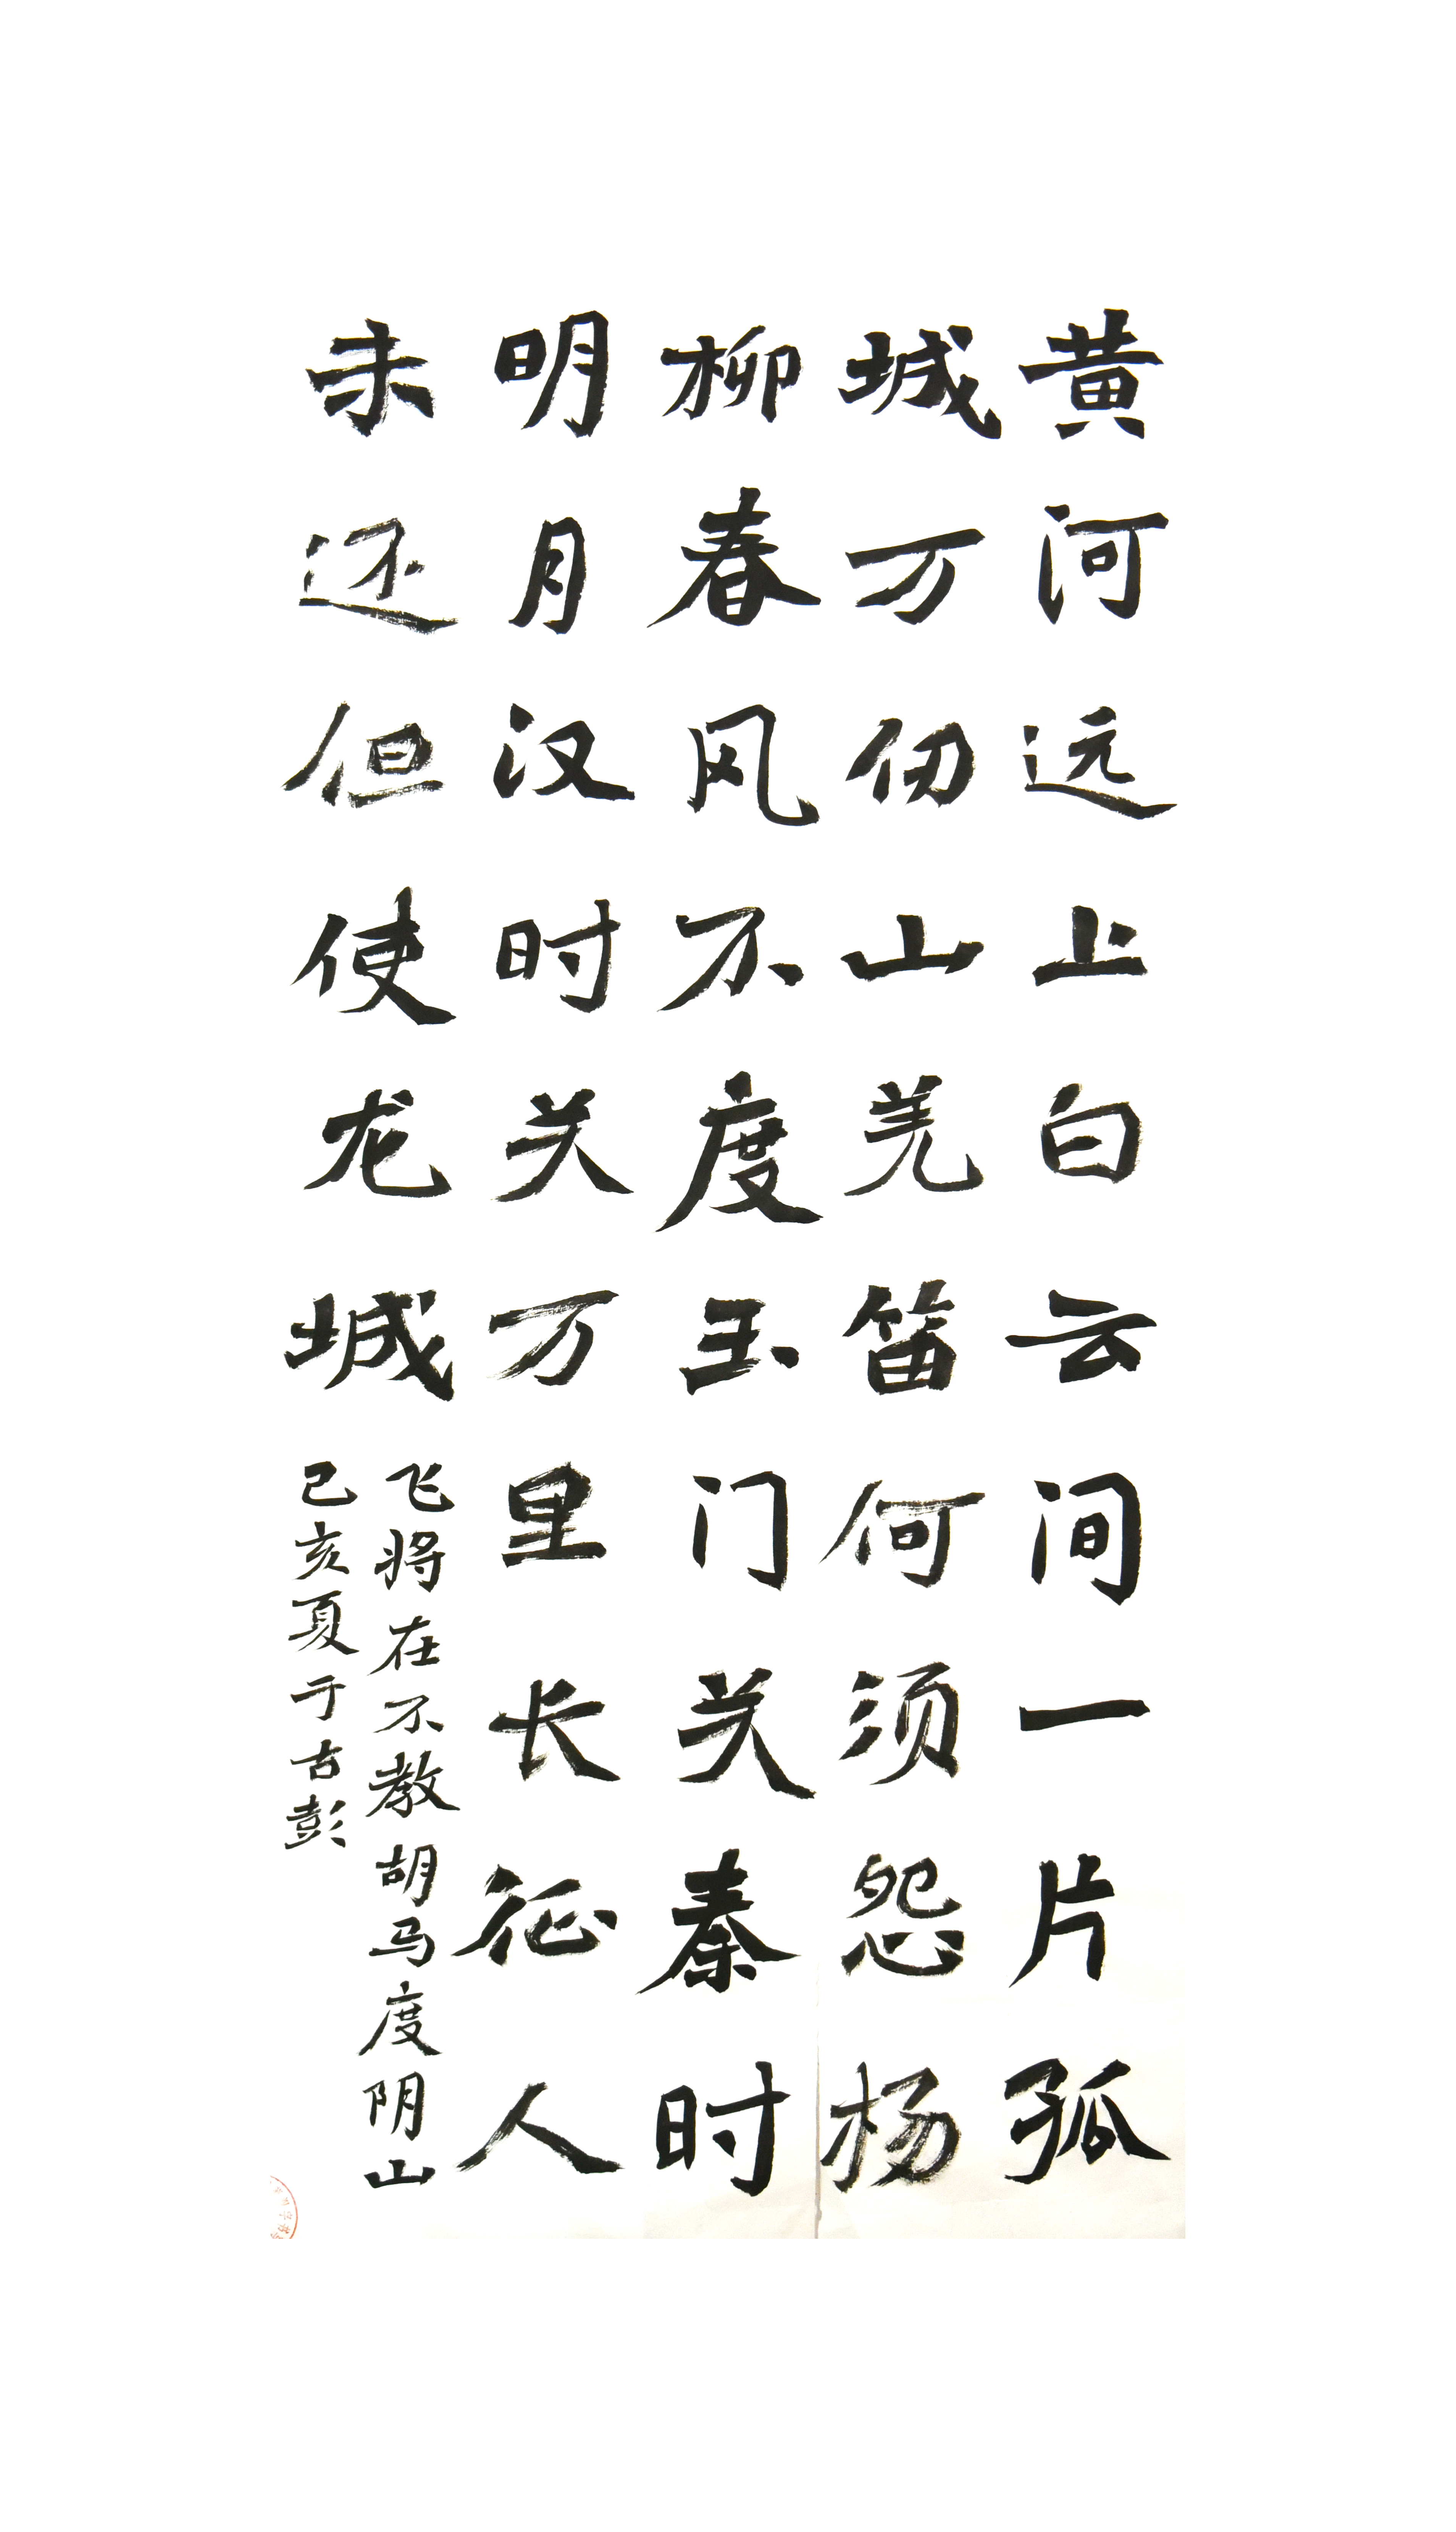 黄河远上白云间一片孤
城万仞山羌笛何须怨杨
柳春风不度玉门关秦时
明月汉时关万里长征人
未还但使龙城
飞将在不教胡马度阴山
己亥夏于古彭